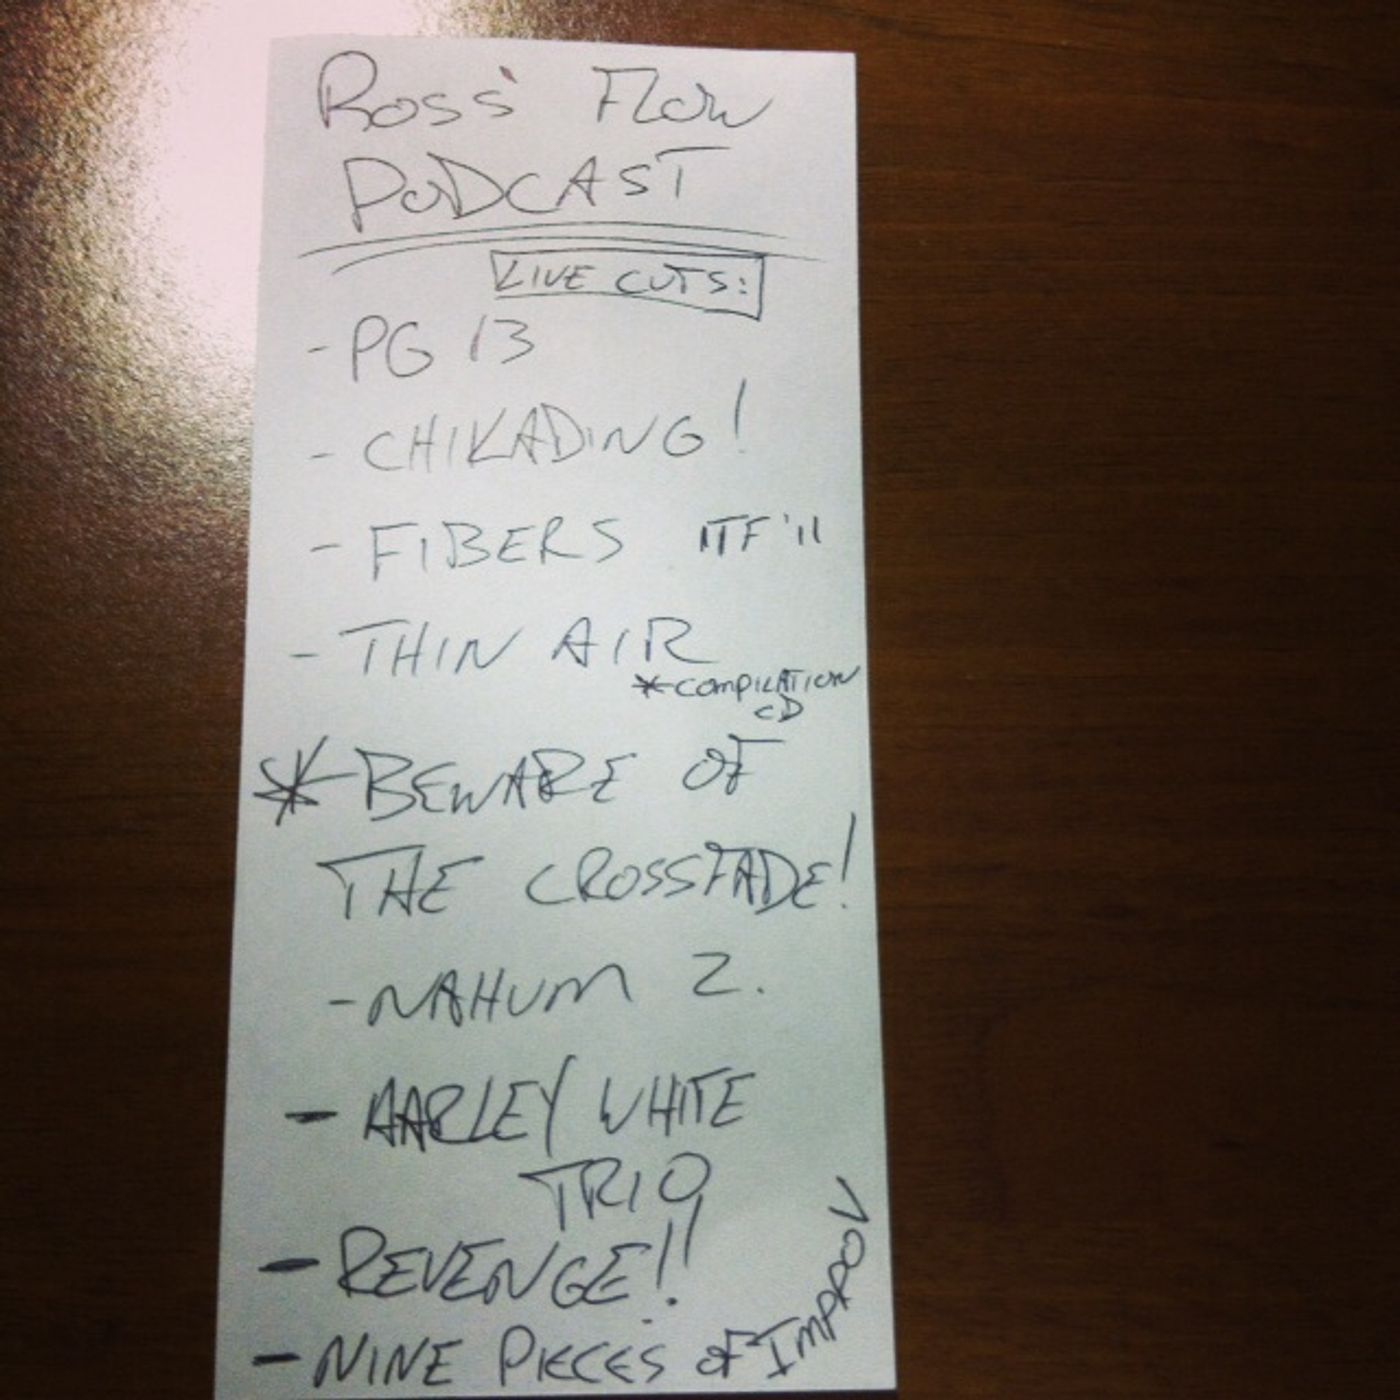 Ross' Flow
PODCAST
LIVE CUTS:
- PG 13
- CHIKADING!
- FIBERS ITF '11
- THIN AIR
*COMPILATION
CD
* BEWARE OF
THE CROSSFADE!
- NAHUM Z.
- HARLEY WHITE
TRIO
- REVENGE!!
- NINE PIECES OF IMPROV